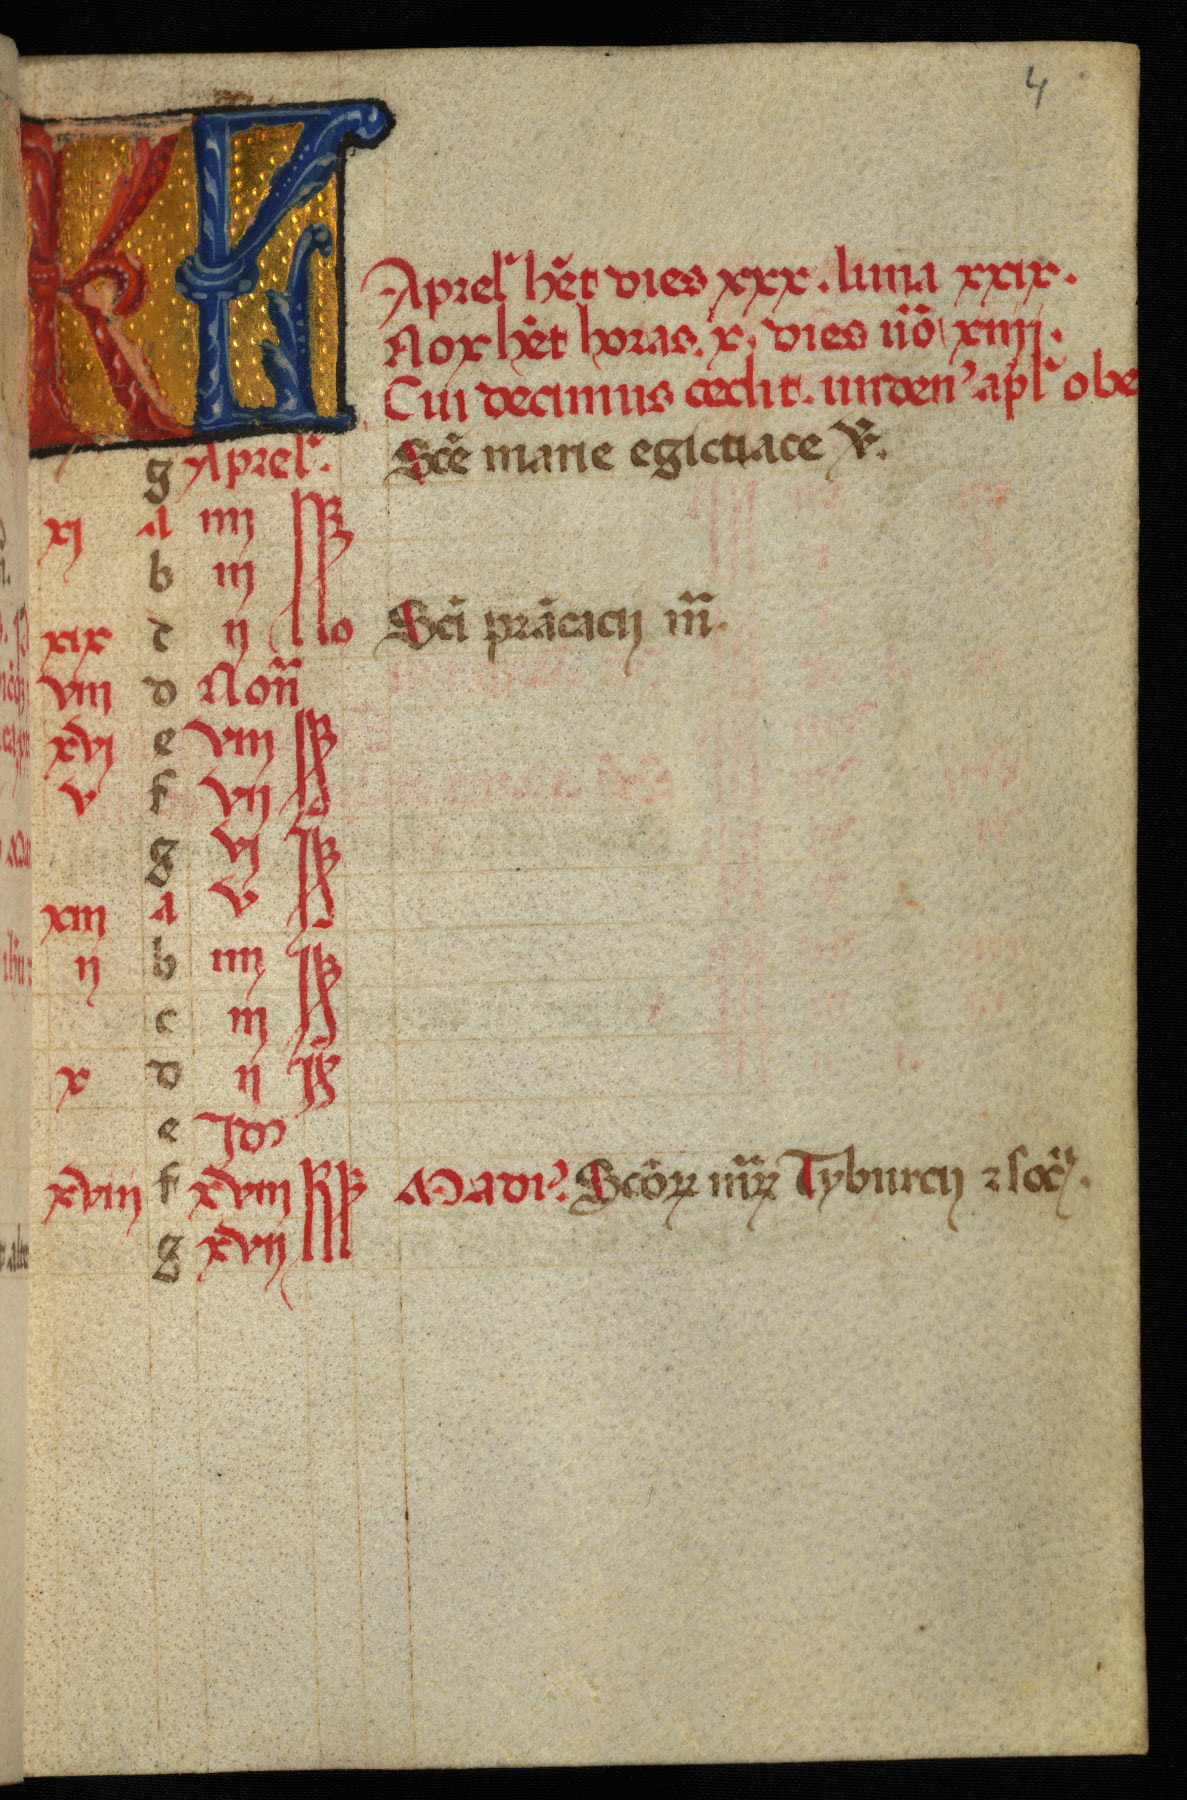 4
KL
Aprel᷒ hẽt dies xxx. luna xxix.
Nox hẽt horas. x. dies ũõ xiiii.
Cui decimus cedit. uirden᷒ apl᷒ obe
g Aprel᷒. Sc̃e marie egictiace Ṽ.
xi a iiii
b iii
xix c ij No Sc̃i prãcacij m̃.
viii d Noñ
xvi e viii
v f vij
g vj
xiii a v
ij b iiij
c iij
x d ij Id᷒
e Id᷒
xviii f xviii Madi᷒. Sc̃oꝝ m̃ꝝ Tyburcij ⁊ soc̃.
g xvij